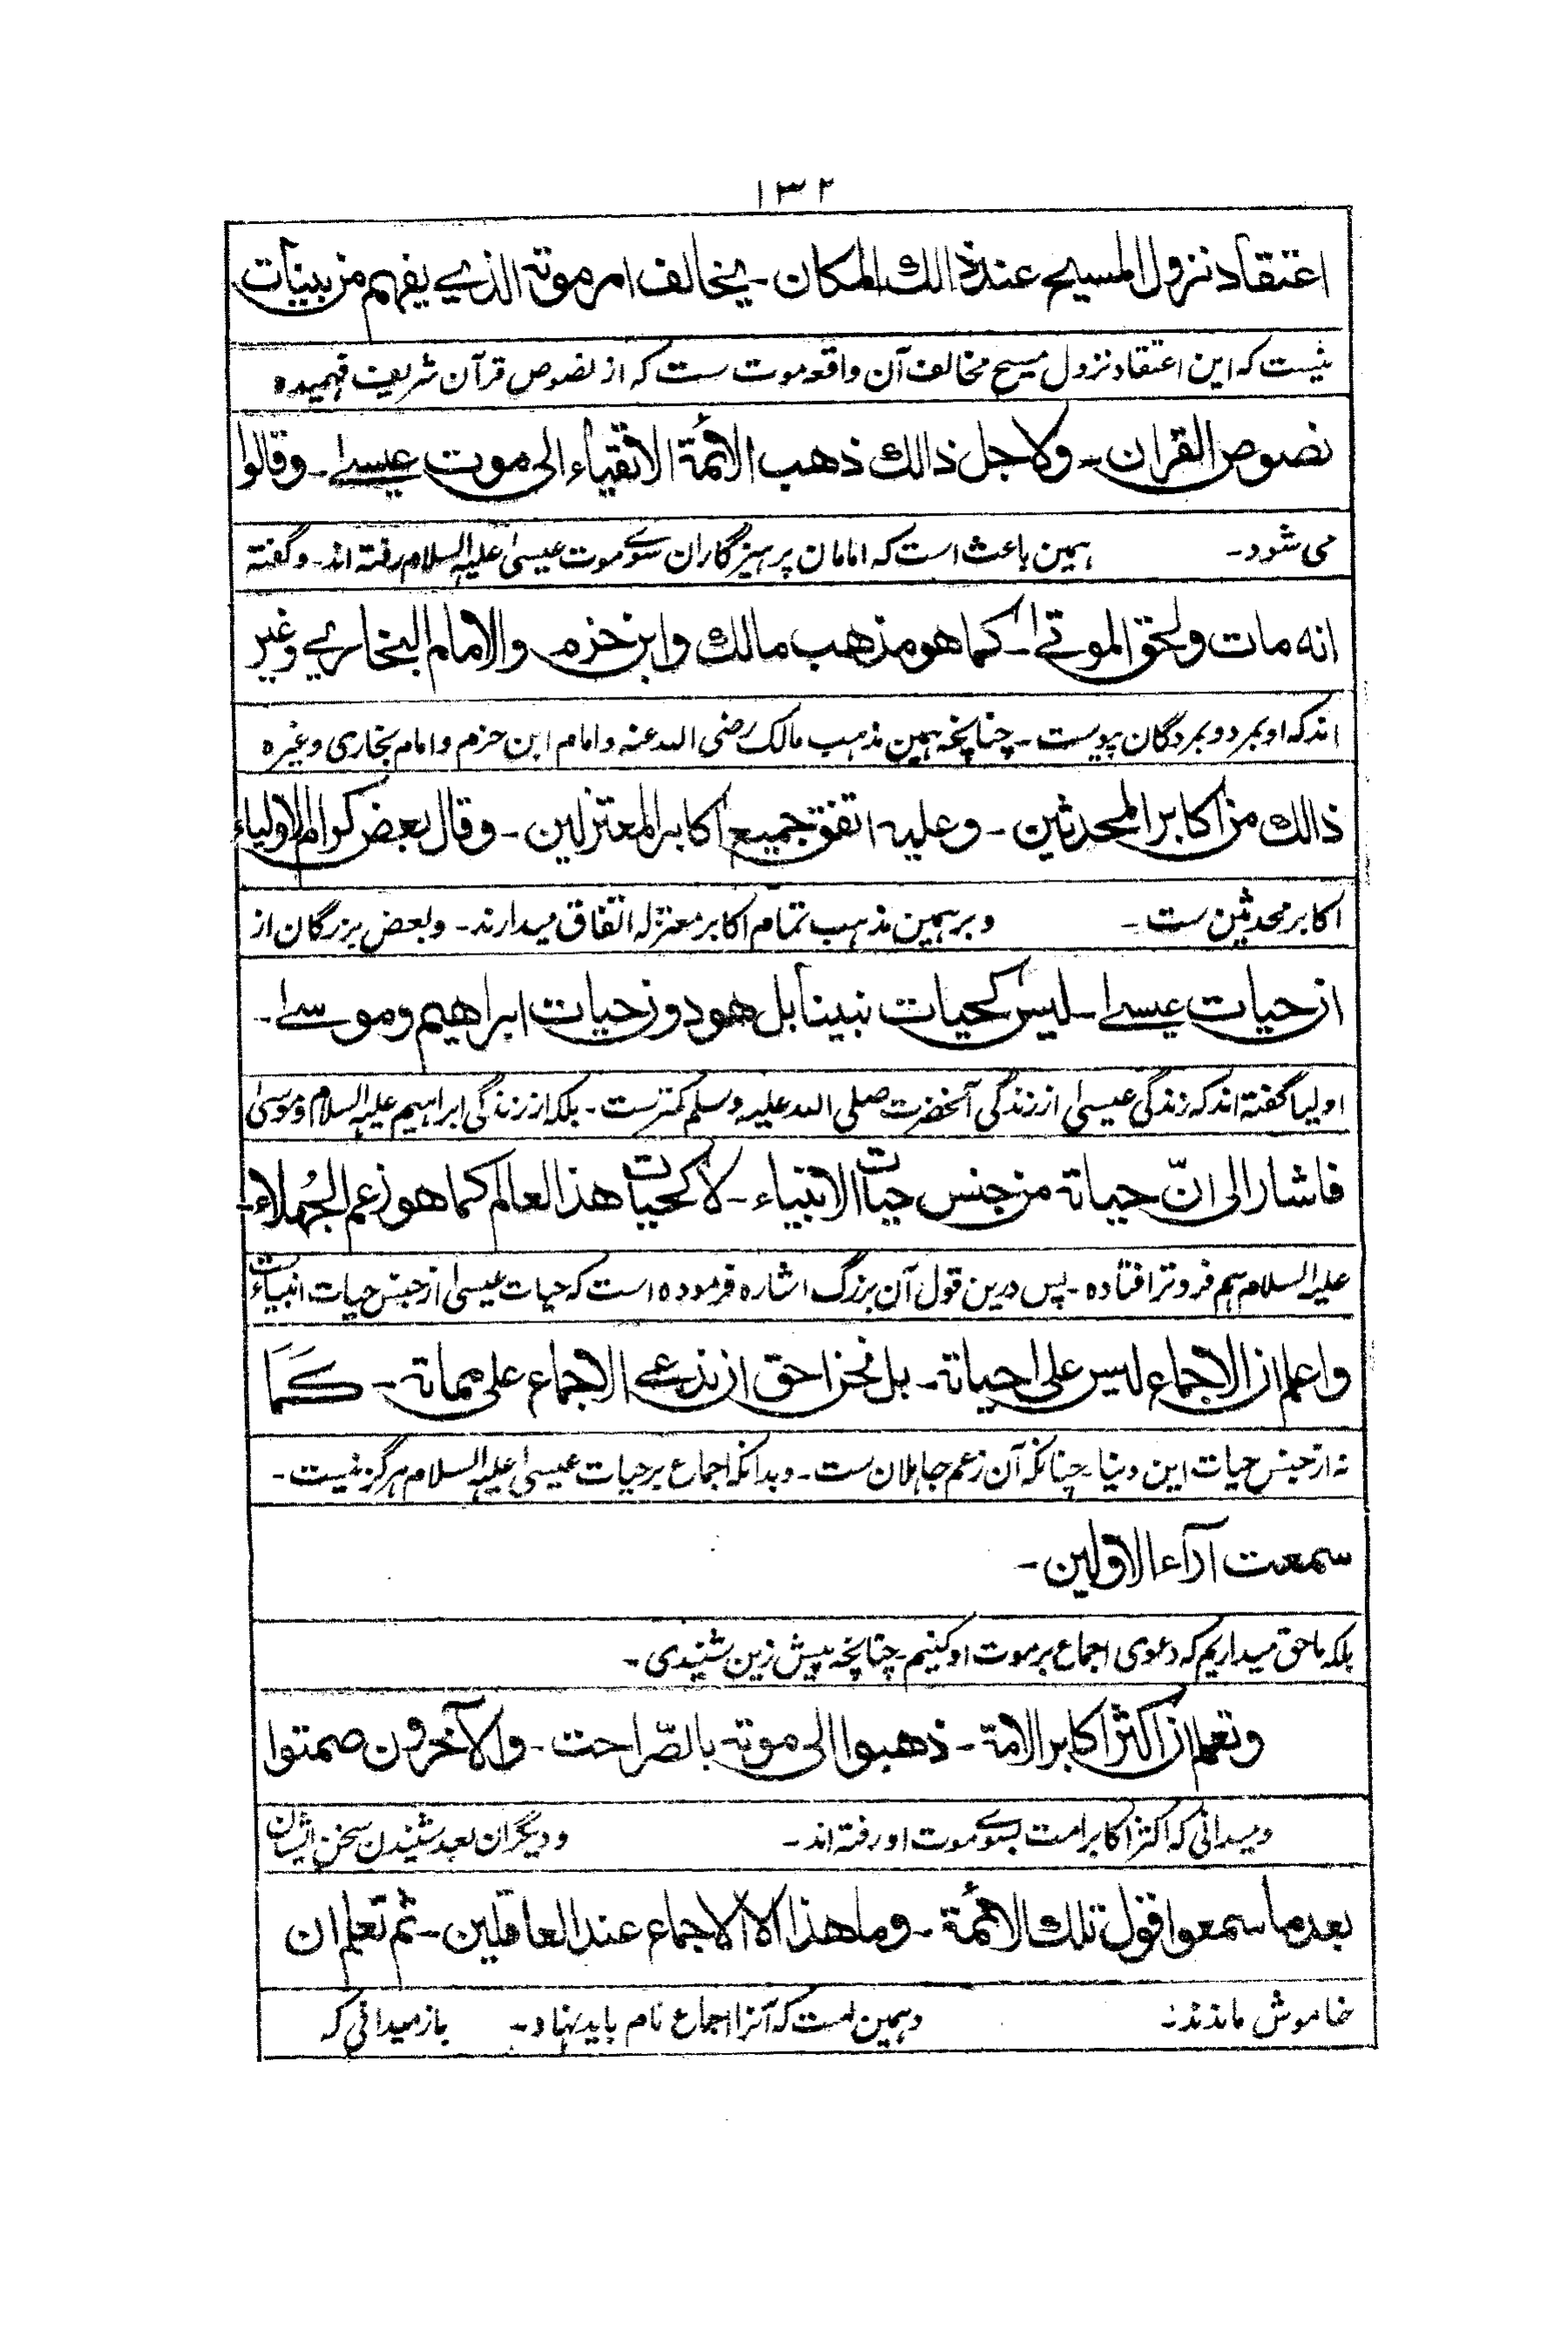 ۱۳۲
اعتقاد نزول المسیح عند ذالك المكان ۔ یخالف امر موتہ الذی یفهم من بینات
نیست کہ این اعتقاد نزول مسیح مخالف آن واقعہ موت ست کہ از نصوص قرآن شریف فہمیدہ
نصوص القران ۔ ولاجل ذالك ذهب الائمة الاتقیاء الی موت عیسیٰ ۔ وقالوا
می شود ۔ ہمین باعث است کہ امامان پرہیزگاران سوئے موت عیسیٰ علیہ السلام رفتہ اند ۔ و گفتہ
انه مات ولحق الموتی ۔ كما هو مذهب مالك وابن حزم والامام البخاری وغیر
اند کہ او بمرد و بمردگان پیوست ۔ چنانچہ ہمین مذہب مالک رضی اللہ عنہ و امام ابن حزم و امام بخاری وغیرہ
ذالك من اكابر المحدثین ۔ وعلیه اتفق جمیع اكابر المعتزلین ۔ وقال بعض كرام الاولیاء
اکابر محدثین ست ۔ و بر ہمین مذہب تمام اکابر معتزلہ اتفاق میدارند ۔ و بعض بزرگان از
ان حیات عیسیٰ ۔ لیس كحیات نبینا بل هو دون حیات ابراهیم وموسیٰ ۔
اولیا گفتہ اند کہ زندگی عیسیٰ از زندگی آنحضرت صلی اللہ علیہ وسلم کمترست ۔ بلکہ از زندگی ابراہیم علیہ السلام و موسیٰ
فاشار الی انّ حیاته من جنس حیات الانبیاء ۔ لا كحیات هذا العالم كما هو زعم الجُهلاء ۔
علیہ السلام ہم فروتر افتادہ ۔ پس درین قول آن بزرگ اشارہ فرمودہ است کہ حیات عیسیٰ از جنس حیات انبیاءست
واعلم ان الاجماع لیس علی حیاته ۔ بل نحن احق ان ندعی الاجماع علی مماته ۔ كَمَا
نہ از جنس حیات این دنیا ۔ چنانکہ آن زعم جاہلان ست ۔ و بدانکہ اجماع بر حیات عیسیٰ علیہ السلام ہرگز نیست ۔
سمعت آراء الاولین ۔
بلکہ ما حق میداریم کہ دعوی اجماع بر موت او کنیم ۔ چنانچہ پیش زین شنیدی ۔
وتعلم ان اكثر اكابر الامة ۔ ذهبوا الی موته بالصّراحت ۔ والآخرون صمتوا
و میدانی کہ اکثر اکابر امت بسوئے موت او رفتہ اند ۔ و دیگران بعد شنیدن سخن ایشان
بعد ما سمعوا قول تلك الائمة ۔ وما هذا الا الاجماع عند العاقلین ۔ ثم تعلم ان
خاموش ماندند ۔ و ہمین است کہ آنرا اجماع نام باید نہاد ۔ باز میدانی کہ